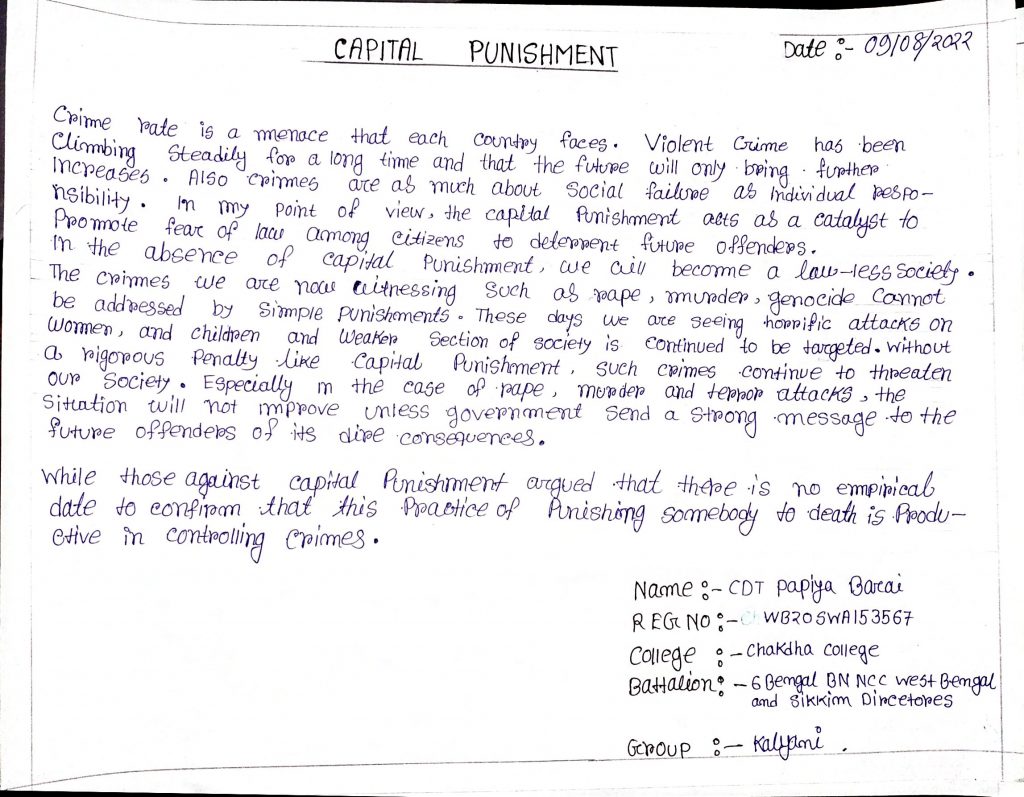 CAPITAL PUNISHMENT
Date :- 09/08/2022
Crime rate is a menace that each country faces. Violent Crime has been
Climbing Steadily for a long time and that the future will only bring further
increases. Also crimes are as much about Social failure as individual respo-
nsibility. In my point of view, the capital Punishment acts as a catalyst to
Promote fear of law among citizens to deterrent future offenders.
In the absence of capital Punishment, we will become a law-less society.
The crimes we are now witnessing Such as rape, murder, genocide Cannot
be addressed by Simple punishments. These days we are seeing horrific attacks on
women, and children and weaker Section of society is continued to be targeted. Without
a rigorous Penalty like Capital Punishment, such crimes continue to threaten
our Society. Especially in the case of rape, murder and terror attacks, the
Sitation will not improve unless government Send a Strong message to the
future offenders of its dire consequences.
While those against capital Punishment argued that there is no empirical
date to confirm that this Practice of Punishing somebody to death is Produ-
ctive in controlling Crimes.
Name :- CDT Papiya Barai
REG NO :- WB20SWA153567
College :- Chakdha College
Battalion :- 6 Bengal BN NCC West Bengal
and Sikkim Dircetores
Group :- Kalyani .